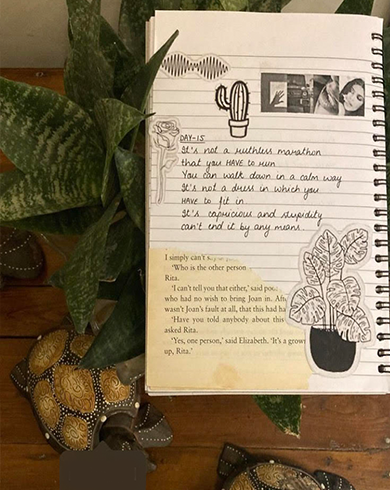 DAY-15
It's not a ruthless marathon
that you HAVE to run
You can walk down in a calm way
It's not a dress in which you
HAVE to fit in
It's capricious and stupidity
can't end it by any means.
I simply can't say
'Who is the other person
Rita.
'I can't tell you that either,' said poo
who had no wish to bring Joan in. Aft
wasn't Joan's fault at all, that this had ha
'Have you told anybody about this
asked Rita.
'Yes, one person,' said Elizabeth. 'It's a grow
up, Rita.'